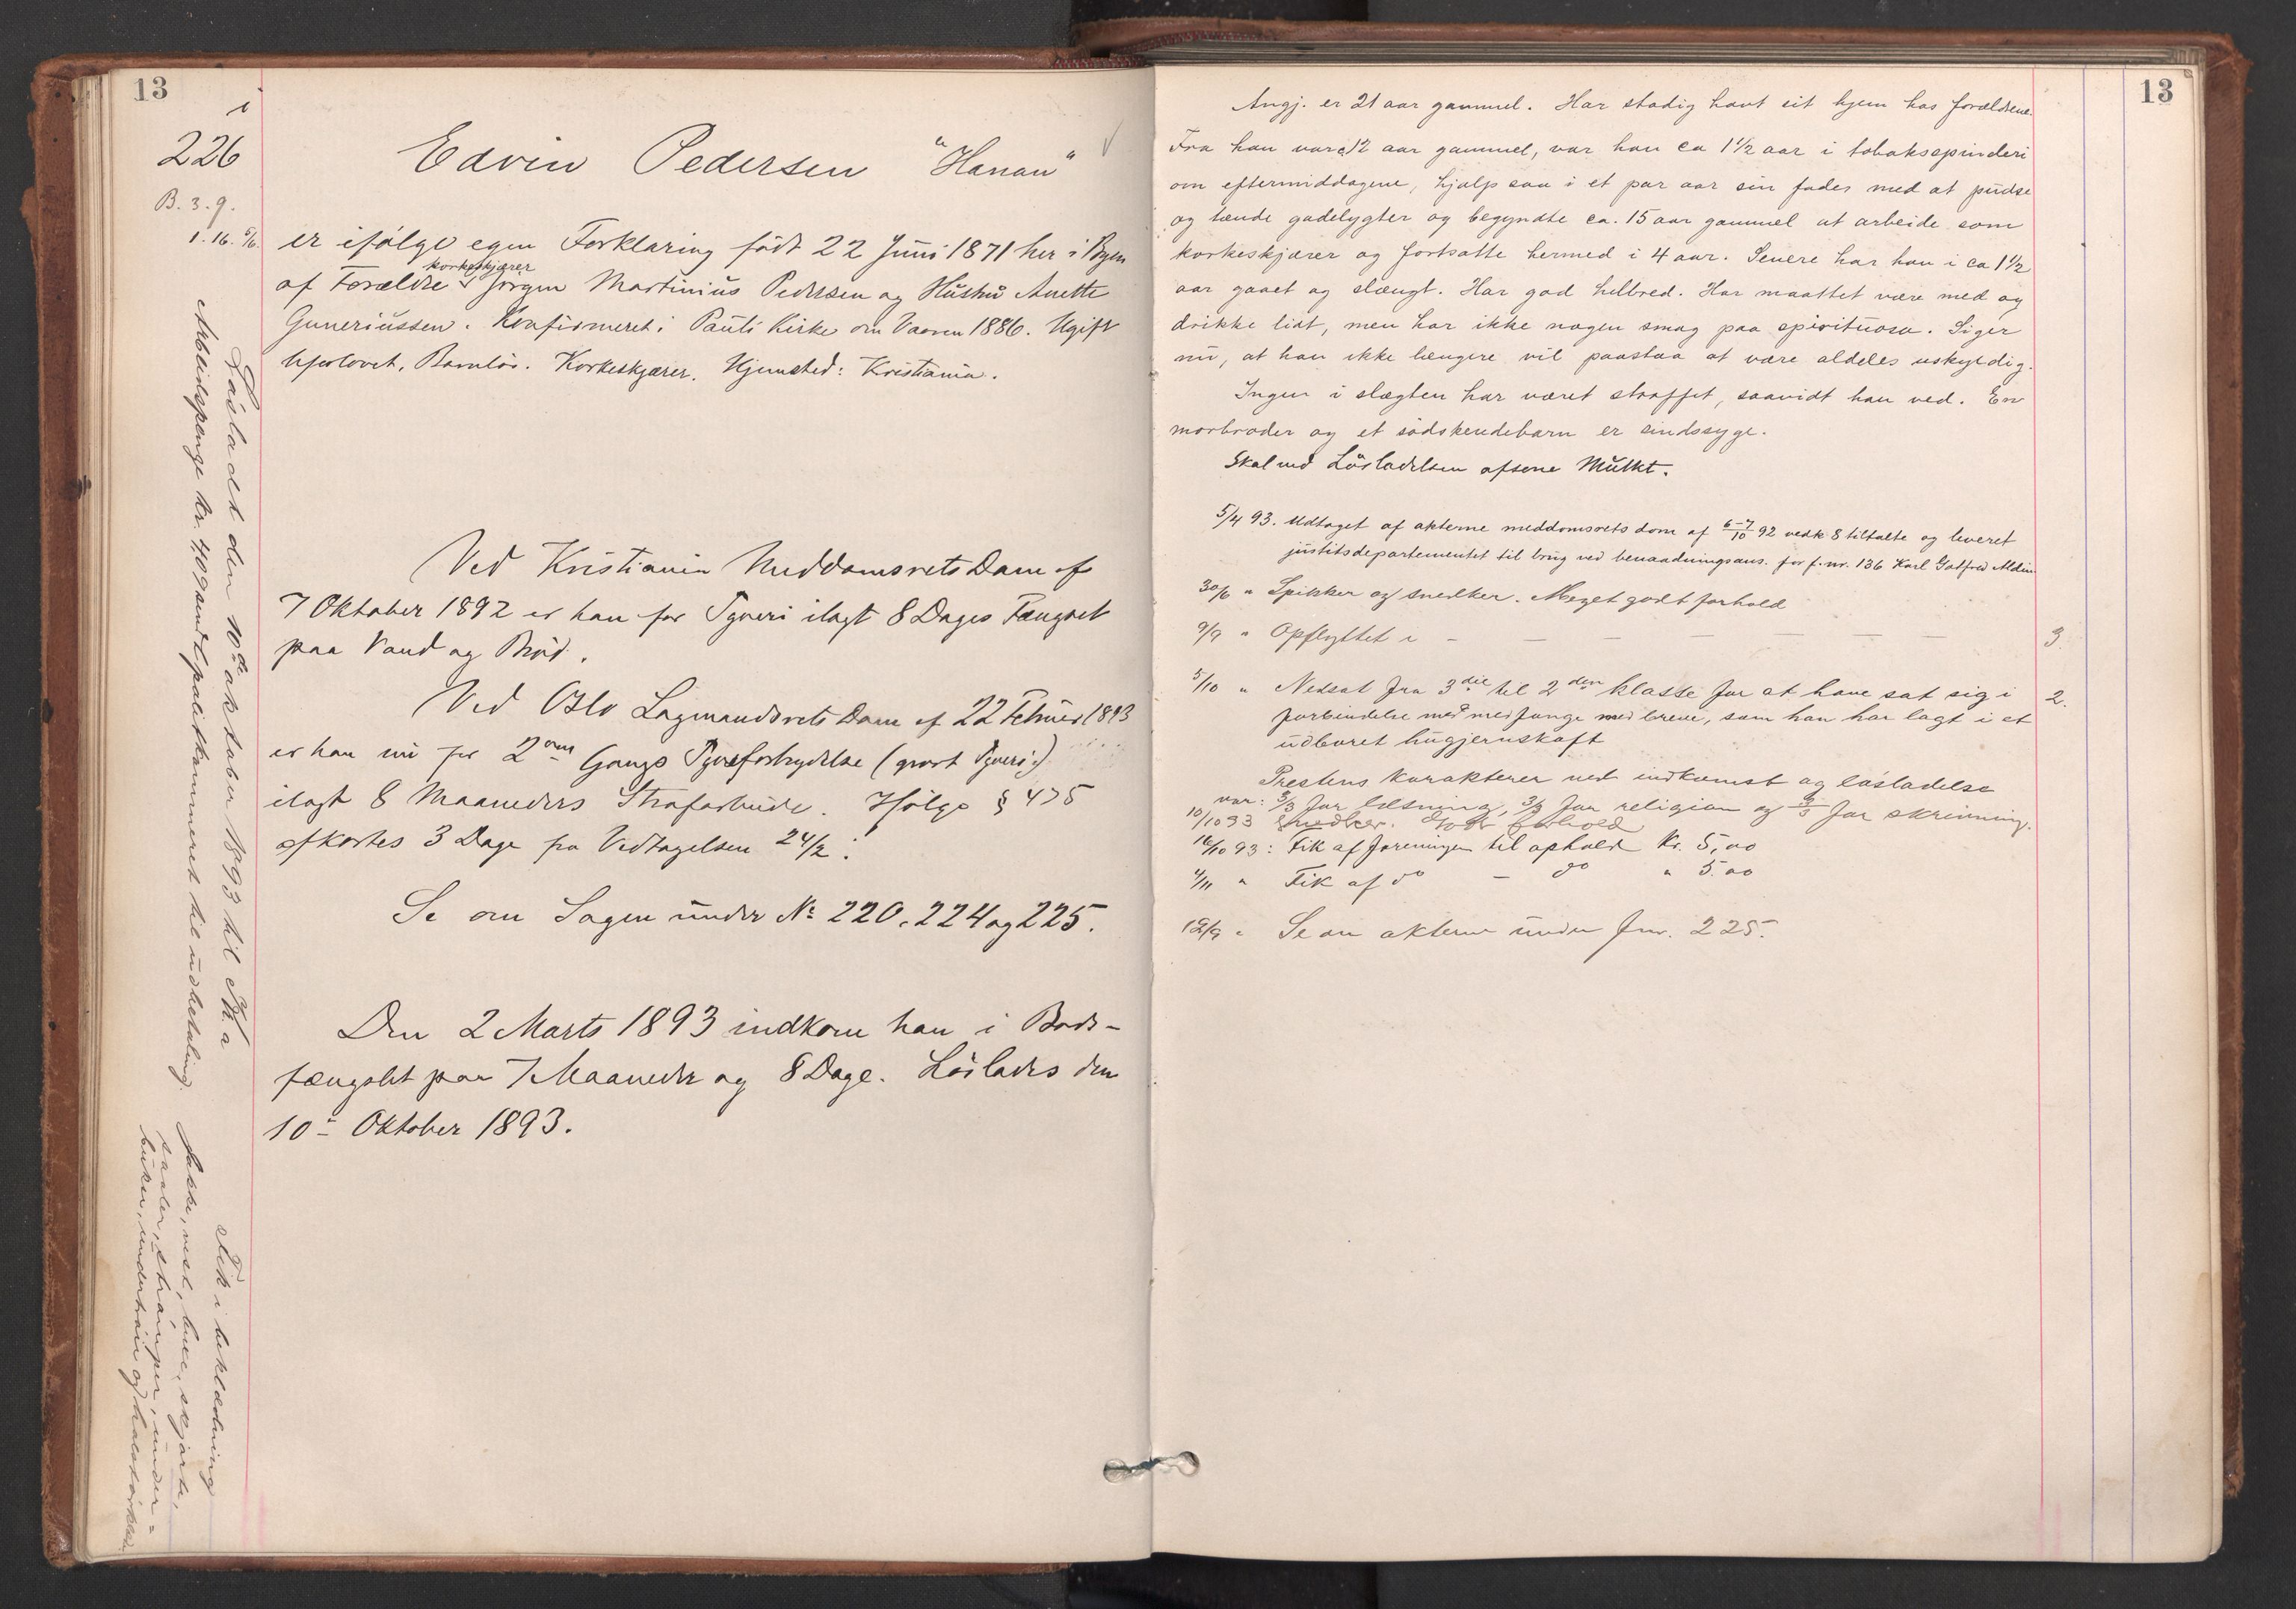 13
i
226
B. 3. 9.
1. 16. 5/6.
Edvin Pedersen "Hanan"
er ifølge egen Forklaring födt 22 Juni 1871 her i Byen
korkeskjærer
af Forældre Jörgen Martinius Pedersen og Hustru Anette
Guneriussen. Konfirmeret i Pauli Kirke om Vaaren 1886. Ugift
Uforlovet, Barnlös. Korkeskjærer. Hjemsted: Kristiania.
Ved Kristiania Meddomsrets Dom af
7 Oktober 1892 er han for Tyveri ilagt 8 Dages Fængsel
paa Vand og Bröd.
Ved Oslo Lagmandsrets Dom af 22 Februar 1893
er han nu for 2den Gangs Tyvsforbrydelse (grovt Tyveri)
ilagt 8 Maaneders Strafarbeide. Ifölge § 475
afkortes 3 Dage fra Vedtagelsen 24/2.
Se om Sagen under No 220, 224 og 225.
Den 2 Marts 1893 indkom han i Bods-
fængslet paa 7 Maaneder og 8 Dage. Löslades den
10 Oktober 1893.
Lösladet den 10de oktober 1893 til Kra
Arbeidspenge kr. 40 sendt politikammeret til udbetaling.
Fik i beklædning
Jakke, vest, buxe, skjorte,
saaler, strömper, under-
buxer, undertröie og halstörklæde.
13
Angj. er 21 aar gammel. Har stadig havt sit hjem hos forældrene.
Fra han var ca 12 aar gammel, var han ca 1 1/2 aar i tobakspinderi
om eftermiddagene, hjalp saa i et par aar sin fader med at pudse
og tænde gadelygter og begyndte ca. 15 aar gammel at arbeide som
korkeskjærer og fortsatte hermed i 4 aar. Senere har han i ca 1 1/2
aar gaaet og slængt. Har god helbred. Har maattet være med og
drikke lidt, men har ikke nogen smag paa spirituosa. Siger
nu, at han ikke længere vil paastaa at være aldeles uskyldig.
Ingen i slægten har været straffet, saavidt han ved. En
morbroder og et södskendebarn er sindssyge.
Skal ved Lösladelsen afsone Mulkt.
5/4 93. Udtaget af akterne meddomsrets dom af 6-7/10 92 vedk 8 tiltalte og leveret
justitsdepartementet til brug ved benaadningsans. for f. nr. 136 Karl Gotfred Aldin
30/6 " Spikker og snedker. Meget godt forhold
9/9 " Opflyttet i - - - - - - 3.
5/10 " Nedsat fra 3die til 2den klasse for at have sat sig i 2.
forbindelse med medfange med breve, som han har lagt i et
udboret hugjernskaft
Prestens karakterer ved indkomst og lösladelse
var: 3/3 for læsning, 3/3 for religion og 3/3 for skrivning.
10/10 93 Snedker. Godt forhold
16/10 93: Fik af foreningen til ophold Kr. 5,00
4/11 " Fik af do - do " 5.00
12/9 " Se om akterne under fnr. 225.